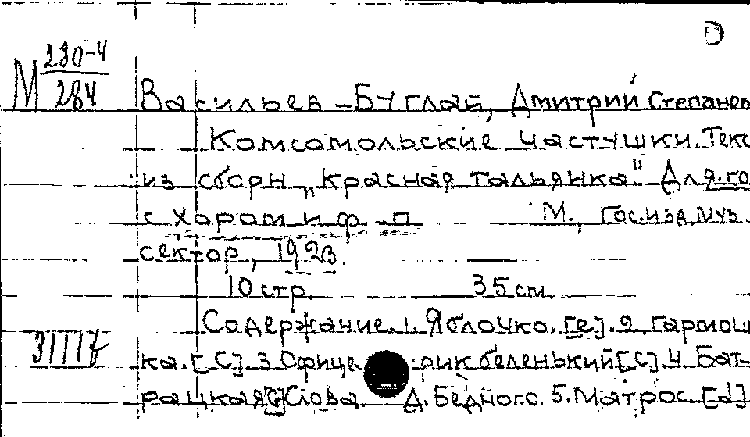 М 230-4
284
Васильев-Буглай, Дмитрий Степанов
Комсомольские частушки. Текс
из сборн. „Красная тальянка" Для го
с хором и ф-п
М., Гос. изд. муз.
сектор, 1923.
10 стр. 35 см
Содержание. 1. Яблочко. [е]. 2 Гармош
ка. [С]. 3. Офице рик беленький [С]. 4. Бат
рацкая [C] Слова Д. Бедного. 5. Матрос. [d]